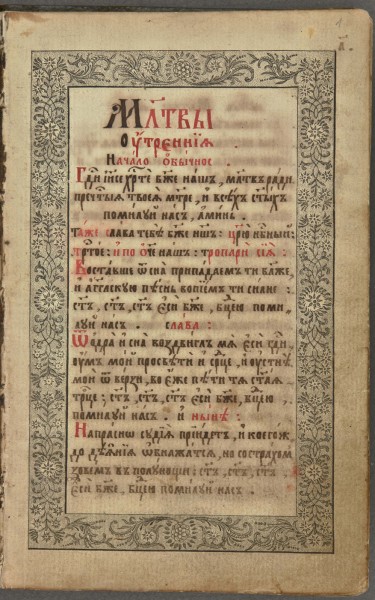 Мл҃твы
Оу҆́тренїѧ
Начало обычное .
Гдⷭ҇и і҆и҃се хрⷭ҇те бж҃е нашъ, мл҃твъ ради
пречⷭ҇тыѧ твоеѧ мт҃ре, и всѣхъ ст҃ыхъ
помилуи насъ, аминь .
Таже слава тебѣ бж҃е нш҃ъ : цр҃ю нбⷭ҇ныи :
трⷭ҇тое : и по оч҃е нашъ : тропари сїѧ :
Воставше ѿ сна припадаемъ ти блаже,
и аг҃глскую пѣснь вопїемъ ти силне :
ст҃ъ, ст҃ъ, ст҃ъ еси бж҃е, бцⷣею поми-
луи насъ . слава :
Ѿ одра и сна воздвиглъ мѧ еси гдⷭ҇и
оумъ мои просвѣти и срⷣце, и оустнѣ
мои ѿверзи, во еже пѣти тѧ ст҃аѧ
трⷪ҇це : ст҃ъ, ст҃ъ, ст҃ъ еси бж҃е, бцⷣею,
помилуи насъ . и нынѣ :
Напрасно судїѧ прїидетъ, и коегож-
до дѣѧнїѧ ѡбнажатсѧ, но со страхом
зовемъ в полунощи : ст҃ъ, ст҃ъ, ст҃ъ
еси бж҃е, бцⷣею помилуи насъ .